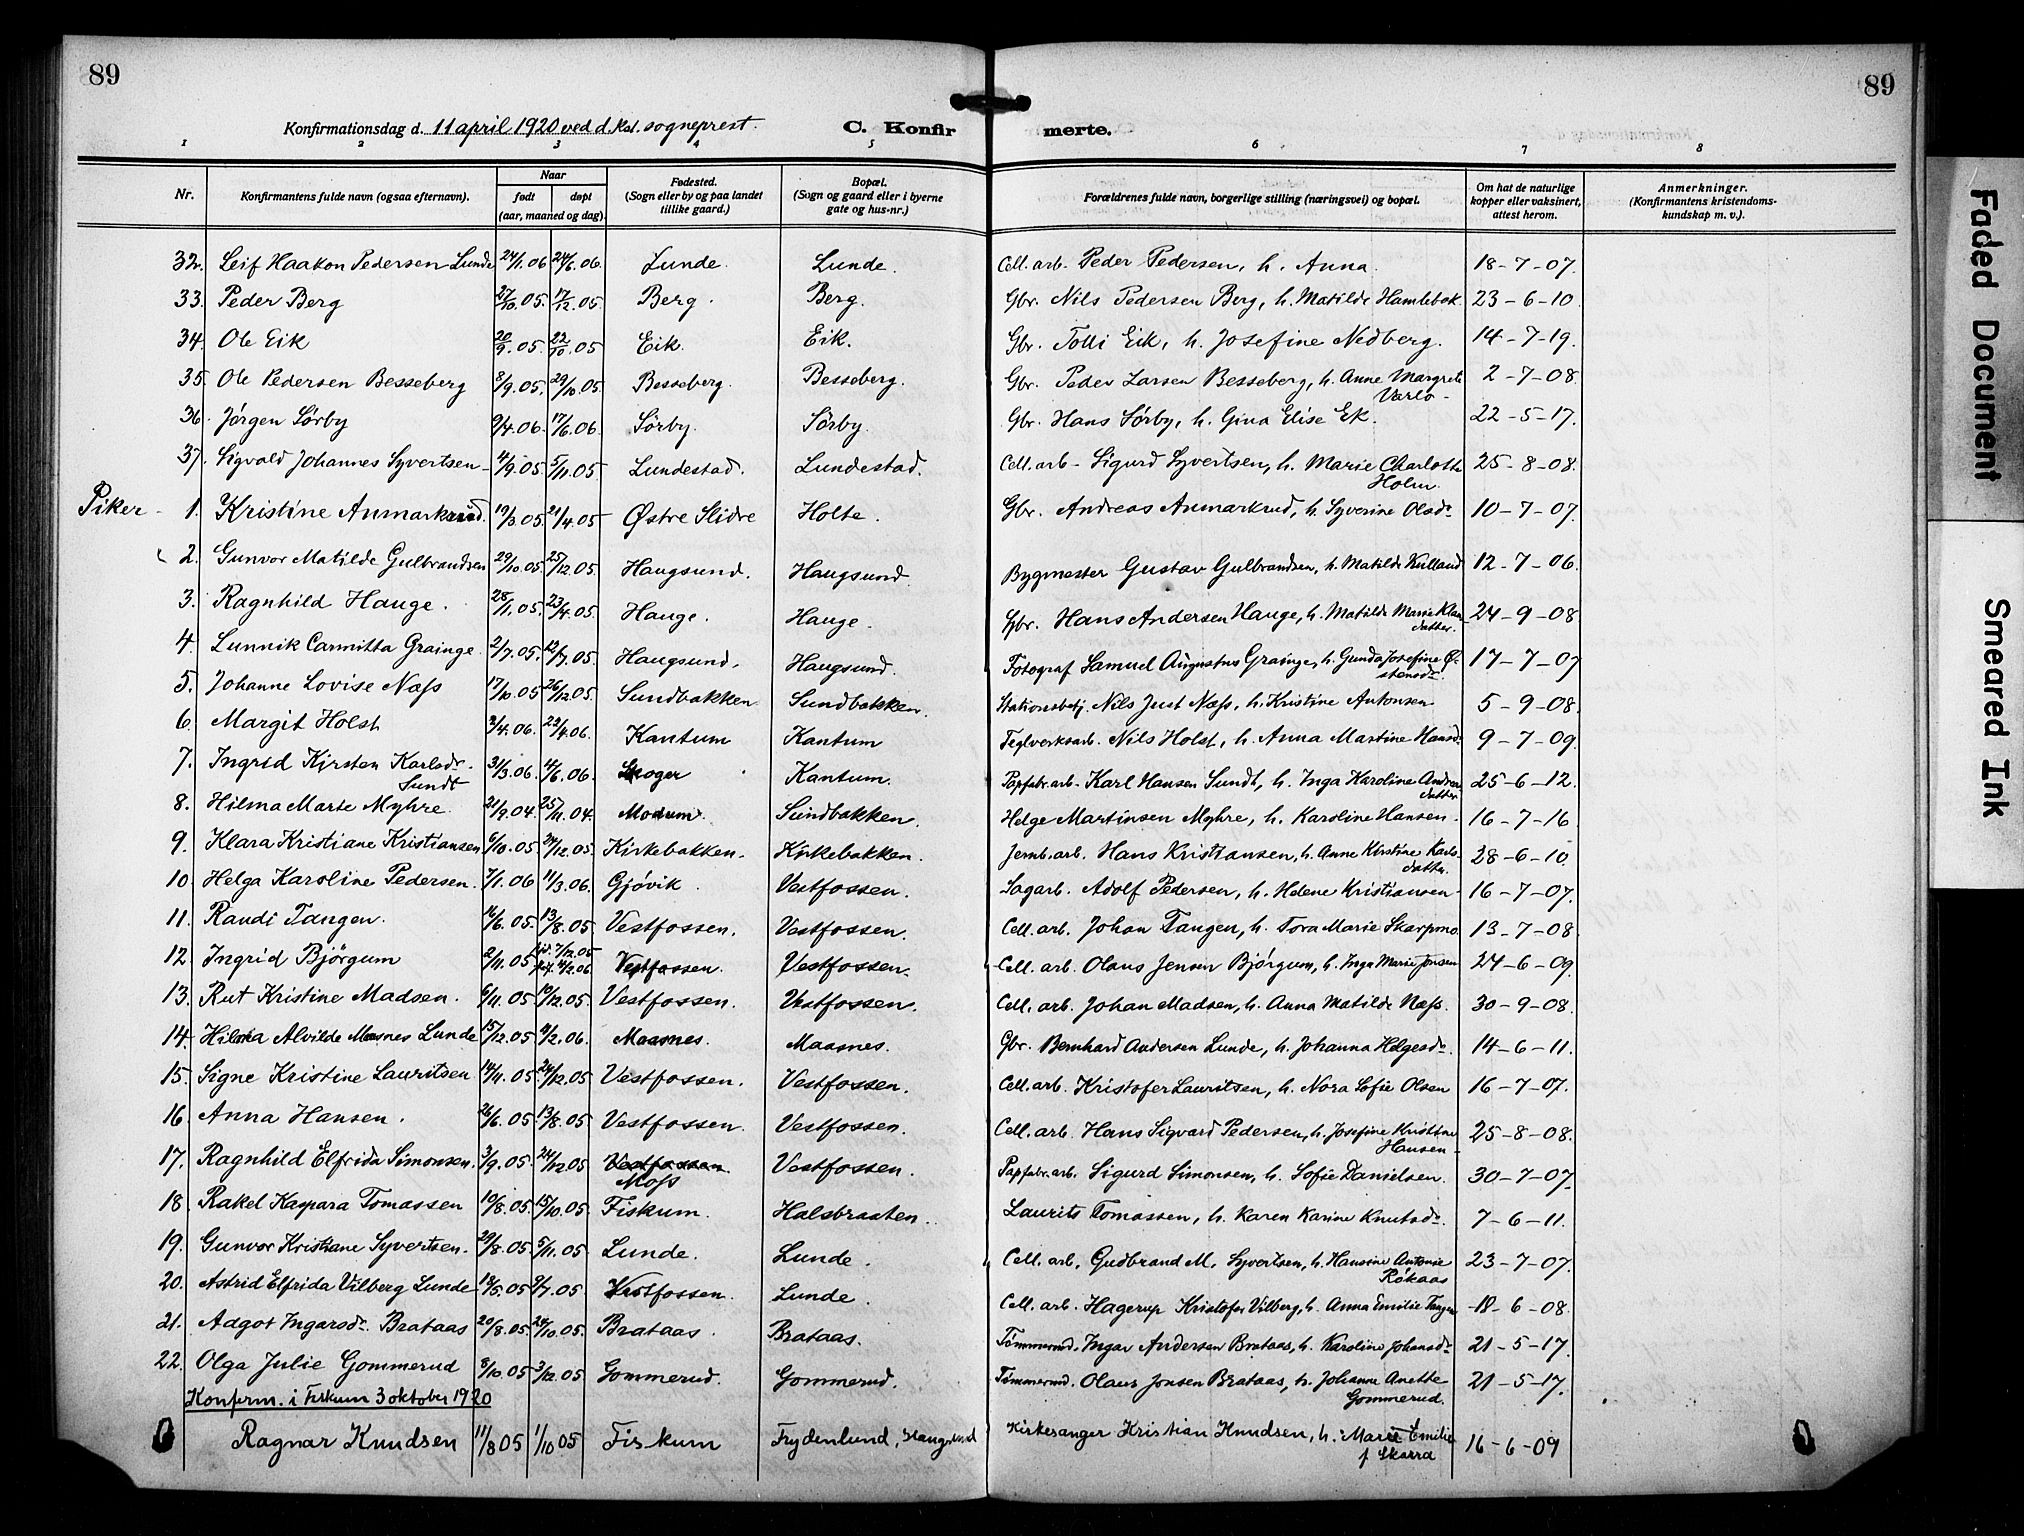 89
89
Konfirmationsdag d. 11 april 1920 ved d. Kst. sogneprest.
C. Konfir merte.
1 2 3 4 5 6 7 8
Nr. Konfirmantens fulde navn (ogsaa efternavn). Naar født døpt (aar, maaned og dag). Fødested. (Sogn eller by og paa landet tillike gaard.) Bopæl. (Sogn og gaard eller i byerne gate og hus-nr.) Forældrenes fulde navn, borgerlige stilling (næringsvei) og bopæl. Om hat de naturlige kopper eller vaksinert, attest herom. Anmerkninger. (Konfirmantens kristendomskundskap m. v.).
32. Leif Haakon Pedersen Lunde 24/1.06 24/6.06. Lunde. Lunde. Cell. arb. Peder Pedersen, h. Anna. 18-7-07.
33. Peder Berg 27/10.05. 17/12.05. Berg. Berg. Gbr. Nils Pedersen Berg, h. Matilde Hamlebok. 23-6-10.
34. Ole Eik 20/9.05. 22/10.05 Eik. Eik. Gbr. Tolli Eik, h. Josefine Nedberg. 14-7-19.
35. Ole Pedersen Besseberg 8/9.05. 29/10.05. Besseberg. Besseberg. Gbr. Peder Larsen Besseberg, h. Anne Margrete Varlo- 2-7-08.
36. Jørgen Sørby 9/4.06. 17/6.06. Sørby. Sørby. Gbr. Hans Sørby, h. Gina Elise Ek. 22-5-17.
37. Sigvald Johannes Syvertsen- 4/9.05. 5/11.05 Lundestad. Lundestad. Cell. arb- Sigurd Syvertsen, h. Marie Charlotte Holm. 25-8-08.
Piker- 1. Kristine Anmarkrud. 19/3.05. 21/4.05 Østre Slidre Holte. Gbr. Andreas Anmarkrud, h. Syverine Olsdr. 10-7-07.
2. Gunvor Matilde Gulbrandsen 29/10.05. 25/12.05. Haugsund. Haugsund. Bygmester Gustav Gulbrandsen, h. Matilde Kulland 12-7-06.
3. Ragnhild Hauge. 28/1.05. 23/4.05. Hauge. Hauge. Gbr. Hans Andersen Hauge, h. Matilde Marie Klausdatter. 24-9-08
4. Lunnik Carmitta Grainge. 2/7.05. 12/7.05. Haugsund. Haugsund. Fotograf Samuel Augustus Grainge, h. Gunda Josefine Østensdr. 17-7-07
5. Johanne Lovise Næss 17/10.05 26/12.05. Sundbakken Sundbakken. Stationsbetj. Nils Just Næss, h. Kristine Antonsen 5-9-08.
6. Margit Holst 3/4.06. 22/4.06. Kantum Kantum Teglverksarb. Nils Holst, h. Anna Martine Hansdr. 9-7-09.
7. Ingrid Kirsten Karlsdr. Sundt 31/3.06. 4/6.06. Skoger Kantum. Papfabr. arb- Karl Hansen Sundt, h. Inga Karoline Andersdatter 25-6-12.
8. Hilma Marte Myhre. 21/9.04. 25/11.04. Modum. Sundbakken. Helge Martinsen Myhre, h. Karoline Hansen. 16-7-16
9. Klara Kristiane Kristiansen 6/10.05 24/12.05. Kirkebakken. Kirkebakken. Jernb. arb. Hans Kristiansen, h. Anne Kirstine Karlsdatter. 28-6-10
10. Helga Karoline Pedersen. 7/1.06 11/3.06. Gjøvik. Vestfossen. Sagarb. Adolf Pedersen, h. Helene Kristiansen 16-7-07.
11. Randi Tangen. 16/6.05. 13/8.05. Vestfossen. Vestfossen. Cell. arb. Johan Tangen, h. Tora Marie Skarpmo. 13-7-08.
12. Ingrid Bjørgum 2/11.05 7/12.05 4/2.06. Vestfossen. Vestfossen. Cell. arb. Olaus Jensen Bjørgum, h. Inga Marie Jonsen 24-6-09.
13. Rut Kristine Madsen. 6/11.05 10/12.05. Vestfossen. Vestfossen. Cell. arb. Johan Madsen, h. Anna Matilde Næss. 30-9-08.
14. Hilma Alvilde Maasnes Lunde 15/12.05 4/2.06. Maasnes. Maasnes. Gbr. Bernhard Andersen Lunde, h. Johanna Helgesdr. 14-6-11.
15. Signe Kristine Lauritsen 14/11.05 24/12.05 Vestfossen. Vestfossen. Cell. arb. Kristofer Lauritsen, h. Nora Sofie Olsen 16-7-07.
16. Anna Hansen. 26/6.05 13/8.05 Vestfossen. Vestfossen. Cell. arb. Hans Sigvard Pedersen, h. Josefine Kristine Hansen- 25-8-08.
17. Ragnhild Elfrida Simonsen. 3/9.05. 24/12.05 Vestfossen Moss Vestfossen. Papfabr. arb. Sigurd Simonsen, h. Sofie Danielsen. 30-7-07.
18. Rakel Kaspara Tomassen 10/8.05. 15/10.05 Fiskum. Halsbraaten. Laurits Tomassen, h. Karen Karine Knutsdr. 7-6-11.
19. Gunvor Kristiane Syvertsen. 29/8.05. 5/11.05 Lunde. Lunde. Cell. arb. Gudbrand M. Syvertsen, h. Hansine Antonie Røkaas 23-7-07.
20. Astrid Elfrida Vilberg Lunde 13/5.05 9/7.05 Vestfossen. Lunde. Cell. arb. Hagerup Kristofer Vilberg, h. Anna Emilie Tangen 18-6-08.
21. Aagot Ingarsdr. Brataas 20/8.05. 24/10.05. Brataas. Brataas. Tømmermd. Ingar Andersen Brataas, h. Karoline Johansdr. 21-5-17.
22. Olga Julie Gommerud 8/10.05 3/12.05 Gommerud. Gommerud. Tømmermd. Olaus Jonsen Brataas, h. Johanne Anette Gommerud. 21-5-17.
Konferm. i Fiskum 3 oktober 1920
Ragnar Knudsen 11/8 05 1/10 05 Fiskum Frydenlund, Haugsund Kirkesanger Kristian Knudsen, h. Marie Emilie f Skarra 16-6-09
Faded Document
Smeared Ink